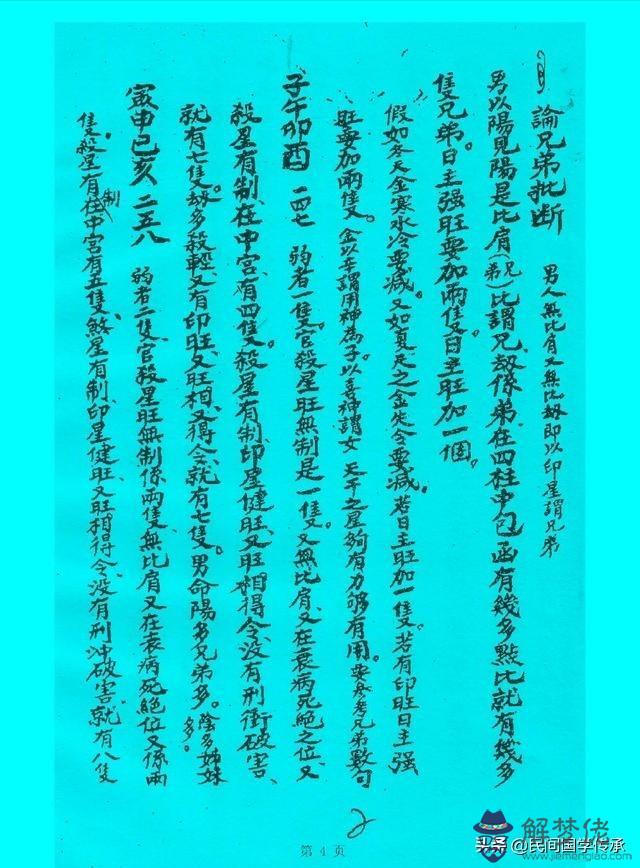 論兄弟批断
男人無比肩又無比劫即以印星謂兄弟
男以陽見陽是比肩(兄弟)比謂兄、劫係弟、在四柱中包函有幾多點比就有幾多
隻兄弟。日主强旺要加兩隻、日主旺加一個。
假如冬天金寒水冷要減。又如夏天之金失令要減。若日主旺加一隻。若有印旺日主强
旺要加兩隻。金以辛謂用神為子以喜神謂女 天干之星夠有力够有用。要參考兄弟數句
子午卯酉 一四七 弱者一隻。官殺星旺無制是一隻。又無比肩、又在衰病死絕之位、又
殺星有制、在中宮、有四隻。殺星有制、印星健旺、又旺相得令、没有刑衝破害、
就有七隻。劫多殺輕、又有印旺、又旺相、又得令、就有七隻。男命陽多兄弟多。陰多姊妹
多。
寅申巳亥 二五八 弱者二隻、官殺星旺無制係兩隻、無比肩又在衰病死絕位又係兩
隻。殺星有制在中宮有五隻、煞星有制、印星健旺、又旺相得令、没有刑冲破害、就有八隻
2
第 4 页
解梦佬
www.jiemenglao.com
头条 @民间国学传承